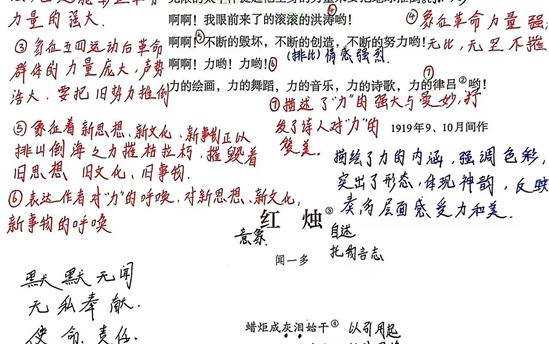 力量的强大
啊啊！我眼前来了的滚滚的洪涛哟！
啊啊！不断的毁坏，不断的创造，不断的努力哟！
④象征革命力量强
无比，无坚不摧
(排比) 情感强烈
啊啊！力哟！力哟！
力的绘画，力的舞蹈，力的音乐，力的诗歌，力的律吕②哟！
③象征五四运动后革命
群体的力量庞大，声势
浩大，要把旧势力推倒
⑦描述了“力”的强大与美妙，抒
发了诗人对“力”的
赞美。
1919年9、10月间作
⑤象征着新思想、新文化、新事物正以
排山倒海之力摧枯拉朽，摧毁着
旧思想、旧文化、旧事物.
描绘了力的内涵，强调色彩，
突出了形态，体现神韵，反映
奏的层面感受力和美.
⑥表达作者对“力”的呼唤，对新思想、新文化、
新事物的呼唤
红烛③
意象
自述
托物言志
闻一多
默默无闻
无私奉献.
使命、责任.
蜡炬成灰泪始干④
以引用起